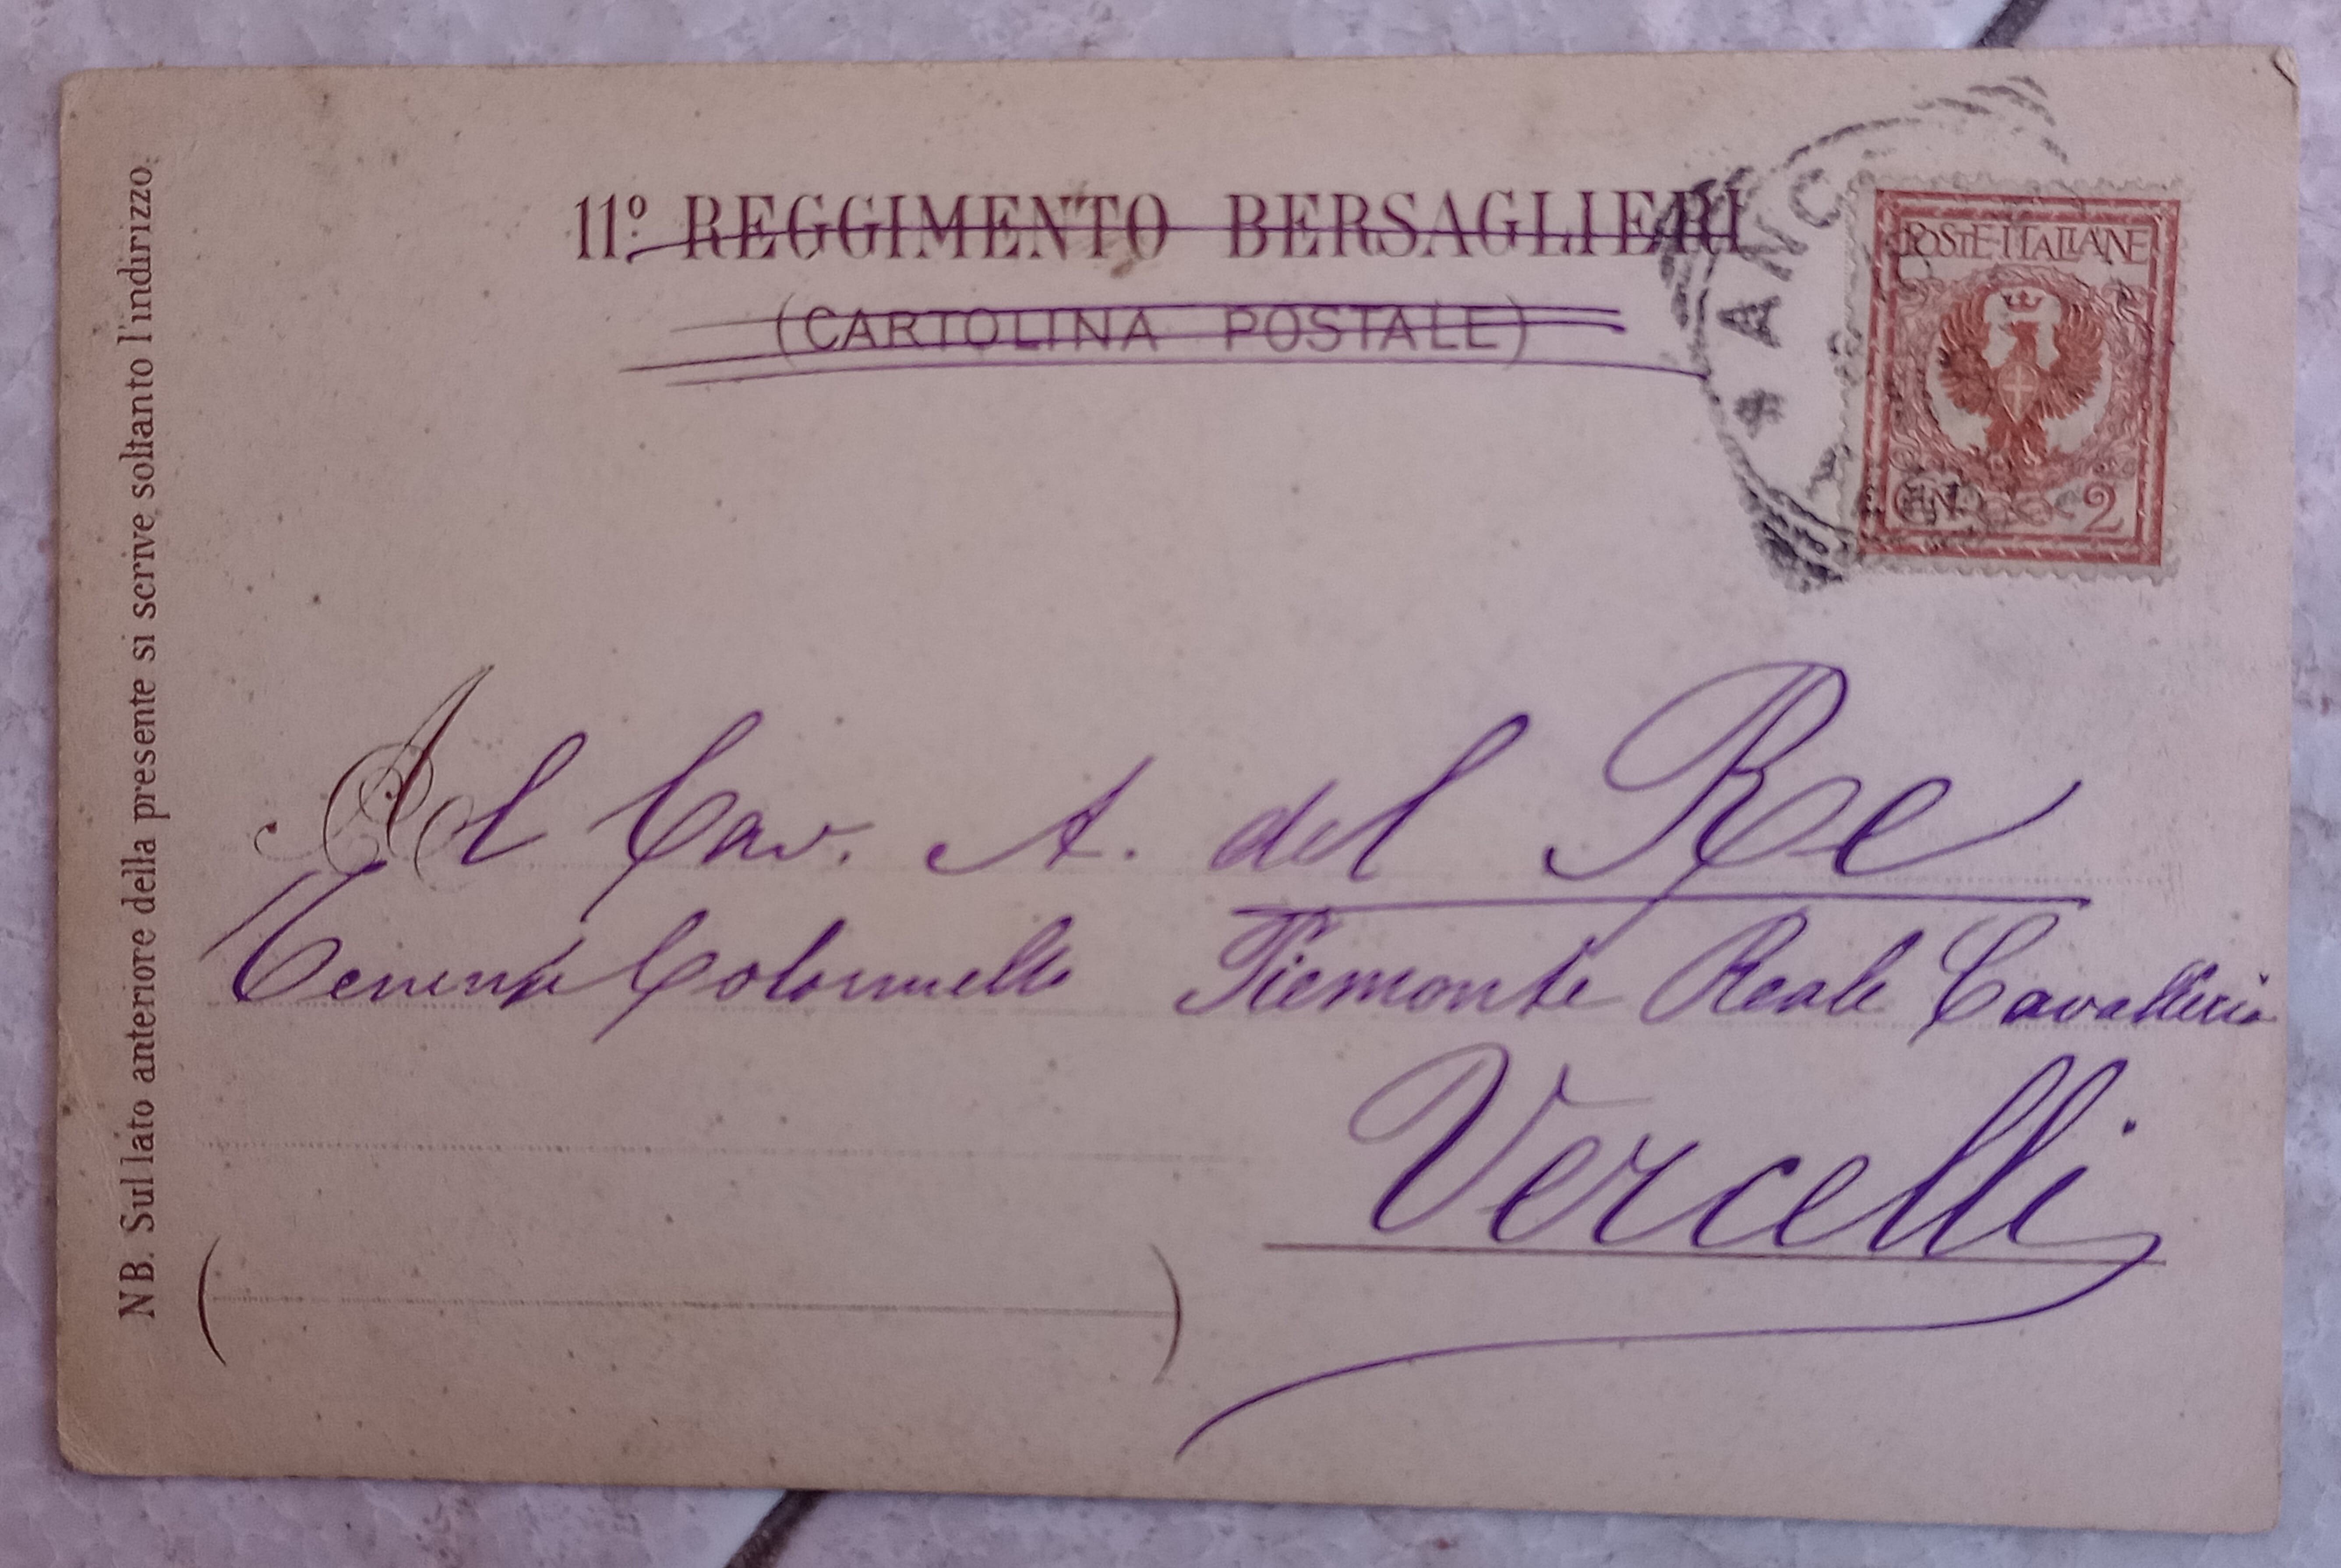 11º REGGIMENTO BERSAGLIERI
(CARTOLINA POSTALE)
ANC
POSTE ITALIANE
CENT 2
Al Cav. A. del Re
Tenente Colonnello Piemonte Reale Cavalleria
Vercelli
NB. Sul lato anteriore della presente si scrive soltanto l'indirizzo.